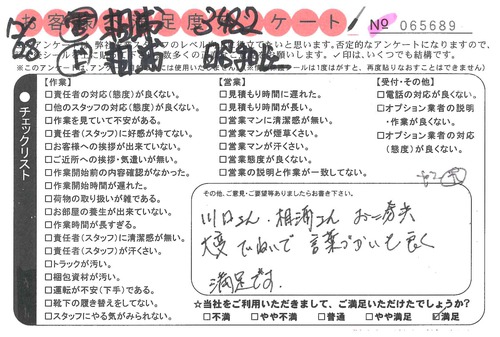 お客様満足度アンケート
No 065689
※このアンケートは無断では使用いたしません
チェックリスト
【作業】
□責任者の対応(態度)が良くない。
□他のスタッフの対応(態度)が良くない。
□作業を見ていて不安がある。
□責任者(スタッフ)に好感が持てない。
□お客様への挨拶が出来ていない。
□ご近所への挨拶・気遣いが無い。
□作業開始前の内容確認がなかった。
□作業開始時間が遅れた。
□荷物の取り扱いが雑である。
□お部屋の養生が出来ていない。
□作業時間が長すぎる。
□責任者(スタッフ)に清潔感が無い。
□責任者(スタッフ)が汗くさい。
□トラックが汚い。
□梱包資材が汚い。
□運転が不安(下手)である。
□靴下の履き替えをしてない。
□スタッフにやる気がみられない。
【営業】
□見積もり時間に遅れた。
□見積もり時間が長い。
□営業マンに清潔感が無い。
□営業マンが煙草くさい。
□営業マンが汗くさい。
□営業態度が良くない。
□営業の説明と作業が一致してない。
【受付・その他】
□電話の対応が良くない。
□オプション業者の説明
・作業が良くない。
□オプション業者の対応
(態度)が良くない。
その他、ご意見・ご要望等ありましたらお書き下さい。
川口さん、相浦さん お二方共
大変ていねいで 言葉づかいも良く
満足です。
☆当社をご利用いただきまして、ご満足いただけたでしょうか?
□不満 □やや不満 □普通 □やや満足 ☑満足